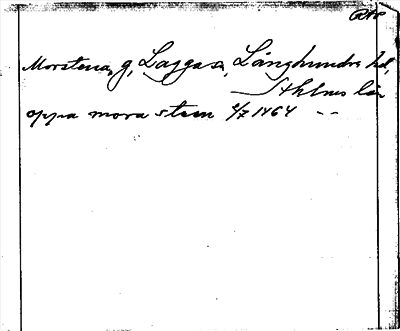 Morstena, g, Laggas, Långhundra hd,
Sthlms län
oppa mora sten 4/7 1464 --